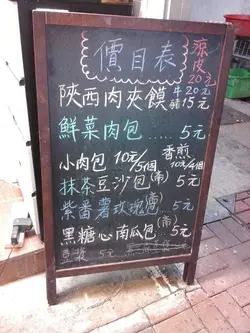 價目表
涼皮 20元
陝西肉夾饃 牛20元
豬15元
鮮菜肉包.....5元
小肉包 10元/5個 香煎 10元/4個
抹茶豆沙包(南) 5元
紫番薯玫瑰 5元
黑糖心南瓜包(南) 5元
豆漿 5元